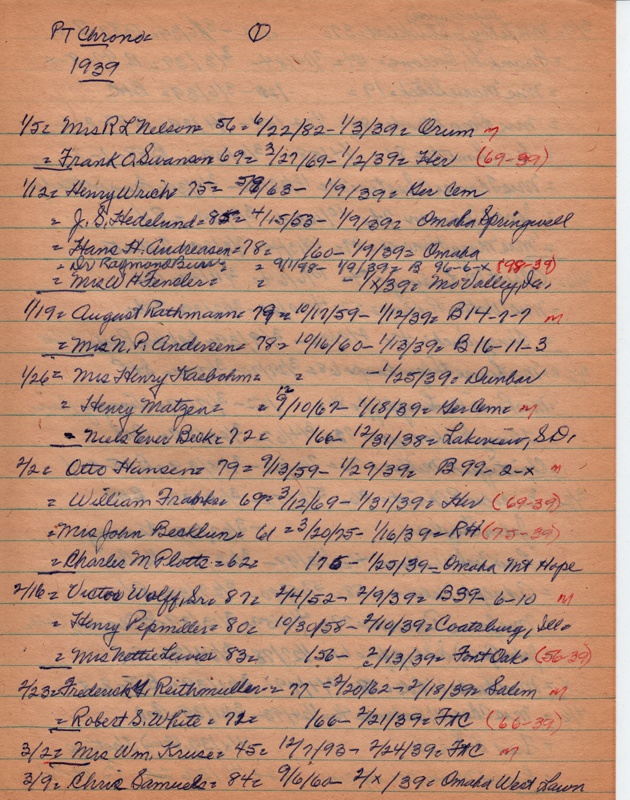 PT Chrono= ①
1939
1/5= Mrs R L Nelson= 56= 6/22/82- 1/3/39= Orum m
= Frank O. Swanson 69= 3/27/69- 1/2/39= Her (69-39)
1/12= Henry Wrich= 75= /63- 1/9/39= Her Cem
= J. S. Hedelund= 85= 4/15/53- 1/9/39= Omaha Springwell
= Hans H. Andreasen= 78= /60- 1/9/39= Omaha
= Dr Raymond = = 9/1/98- 1/9/39= B 96-6-x (98-39)
= Mrs W H Fensler= = - 1/x/39= Mo Valley, Ia.
1/19= August Rathmann= 79= 10/17/59- 1/12/39= B14-7-7 m
= Mrs N. P. Andersen= 78= 10/16/60- 1/13/39= B16-11-3
1/26= Mrs Henry Kaebohm= = -1/25/39= Dunbar
= Henry Matzen= = /10/67- 1/18/39= Her Cem= m
= Niels Ever Beck= 72= /66- 12/31/38= Lakeview, S.D.
2/2= Otto Hansen= 79= 9/13/59- 1/29/39= B99-2-x m
= William Franks= 69= 3/12/69- 1/31/39= Her (69-39)
=Mrs John Becklun= 61 =3/20/75- 1/16/39= RH (75-39)
=Charles M Plotts= 62= /75- 1/25/39- Omaha Mt Hope
2/16= Victor Wolff, Sr= 87= 2/4/52- 2/9/39= B39-6-10 m
= Henry Pepmiller= 80= 10/30/58- 2/10/39= Coatsburg, Ill=
= Mrs Nettie Lewis= 83= /56- 2/13/39= Font Oak= (56-39)
2/23= Frederick Y. Reithmuller= 77 =2/20/62- 2/18/39= Salem m
= Robert S. White= 72= /66- 2/21/39= FtC (66-39)
3/2= Mrs Wm. Kruse= 45= 12/7/93- 2/24/39= FtC m
3/9= Chris Samuels= 84= 9/6/60- 2/x/39= Omaha West Lawn